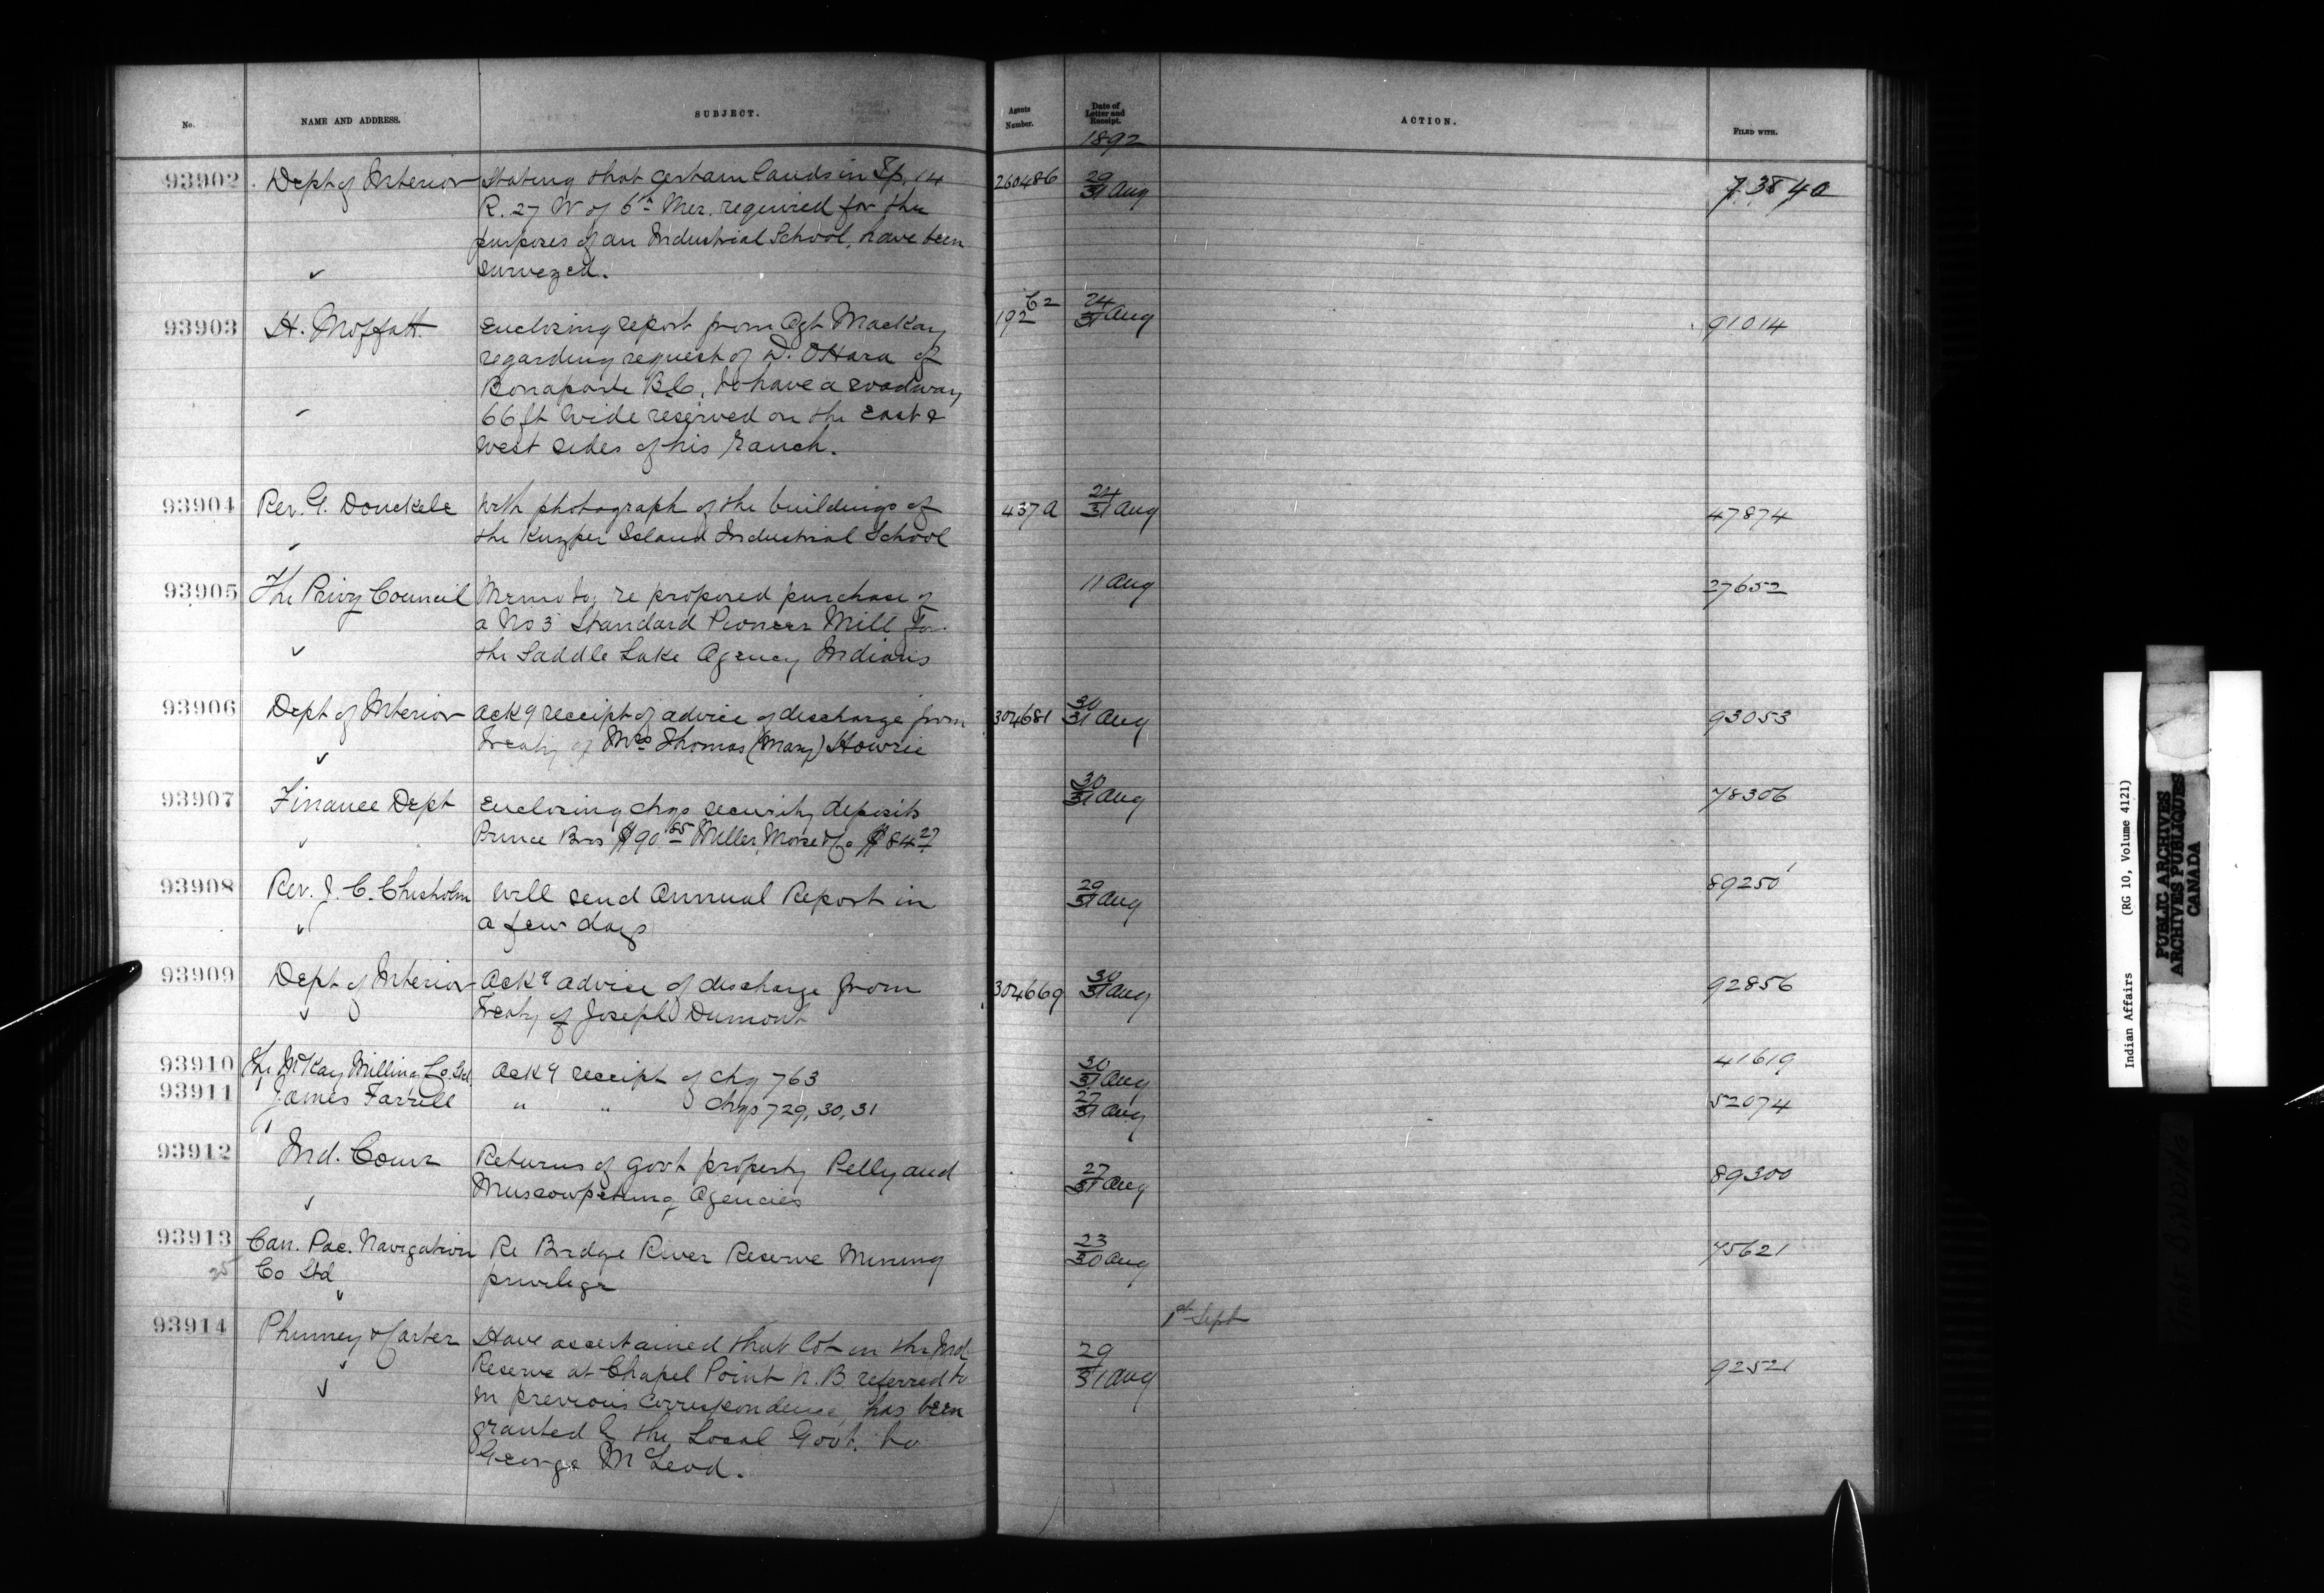 No.
NAME AND ADDRESS.
SUBJECT.
Agents Number.
Date of Letter and Receipt.
1892
ACTION.
FILED WITH.
93902 Dept of Interior Stating that certain lands in Tp. 14 260486 29/31 Aug 73840
R. 27 W of 6th Mer. required for the
purposes of an Industrial School, have been
surveyed.
93903 H. Moffatt Enclosing report from Agt Mackay 192 62 24/31 Aug 91014
regarding request of D. O'Hara of
Bonaparte B.C. to have a roadway
66 ft wide reserved on the East &
West sides of his ranch.
93904 Rev. G. Donckele With photograph of the buildings of 437A 24/31 Aug 47874
the Kuyper Island Industrial School
93905 The Privy Council Memo to, re proposed purchase of 11 Aug 27652
a No 3 Standard Pioneer Mill for
the Saddle Lake Agency Indians
93906 Dept of Interior Ackg receipt of advice of discharge from 304681 30/31 Aug 93053
Treaty of Mrs Thomas (Mary) Howrie
93907 Finance Dept Enclosing chqs security deposits 30/31 Aug 78306
Prince Bros $90.85 Miller, Morse & Co $84.27
93908 Rev. J. C. Chisholm Will send Annual Report in 29/31 Aug 89250
a few days
93909 Dept of Interior Ackg advice of discharge from 304669 30/31 Aug 92856
Treaty of Joseph Dumont
93910 The McKay Milling Co. Ltd Ackg receipt of chq 763 30/31 Aug 41619
93911 James Farrell " " chqs 729, 30, 31 27/31 Aug 52074
93912 Ind. Comr Returns of Govt property Pelly and 27/31 Aug 89300
Muscowpetung Agencies
93913 Can. Pac. Navigation Re Bridge River Reserve Mining 23/30 Aug 75621
Co Ltd privilege
1st Sept
93914 Phinney & Carter Have ascertained that lot in the Ind 29/31 Aug 92521
Reserve at Chapel Point N.B. referred to
in previous correspondence, has been
granted by the Local Govt. to
George McLeod.
Indian Affairs (RG 10, Volume 4121)
PUBLIC ARCHIVES
ARCHIVES PUBLIQUES
CANADA